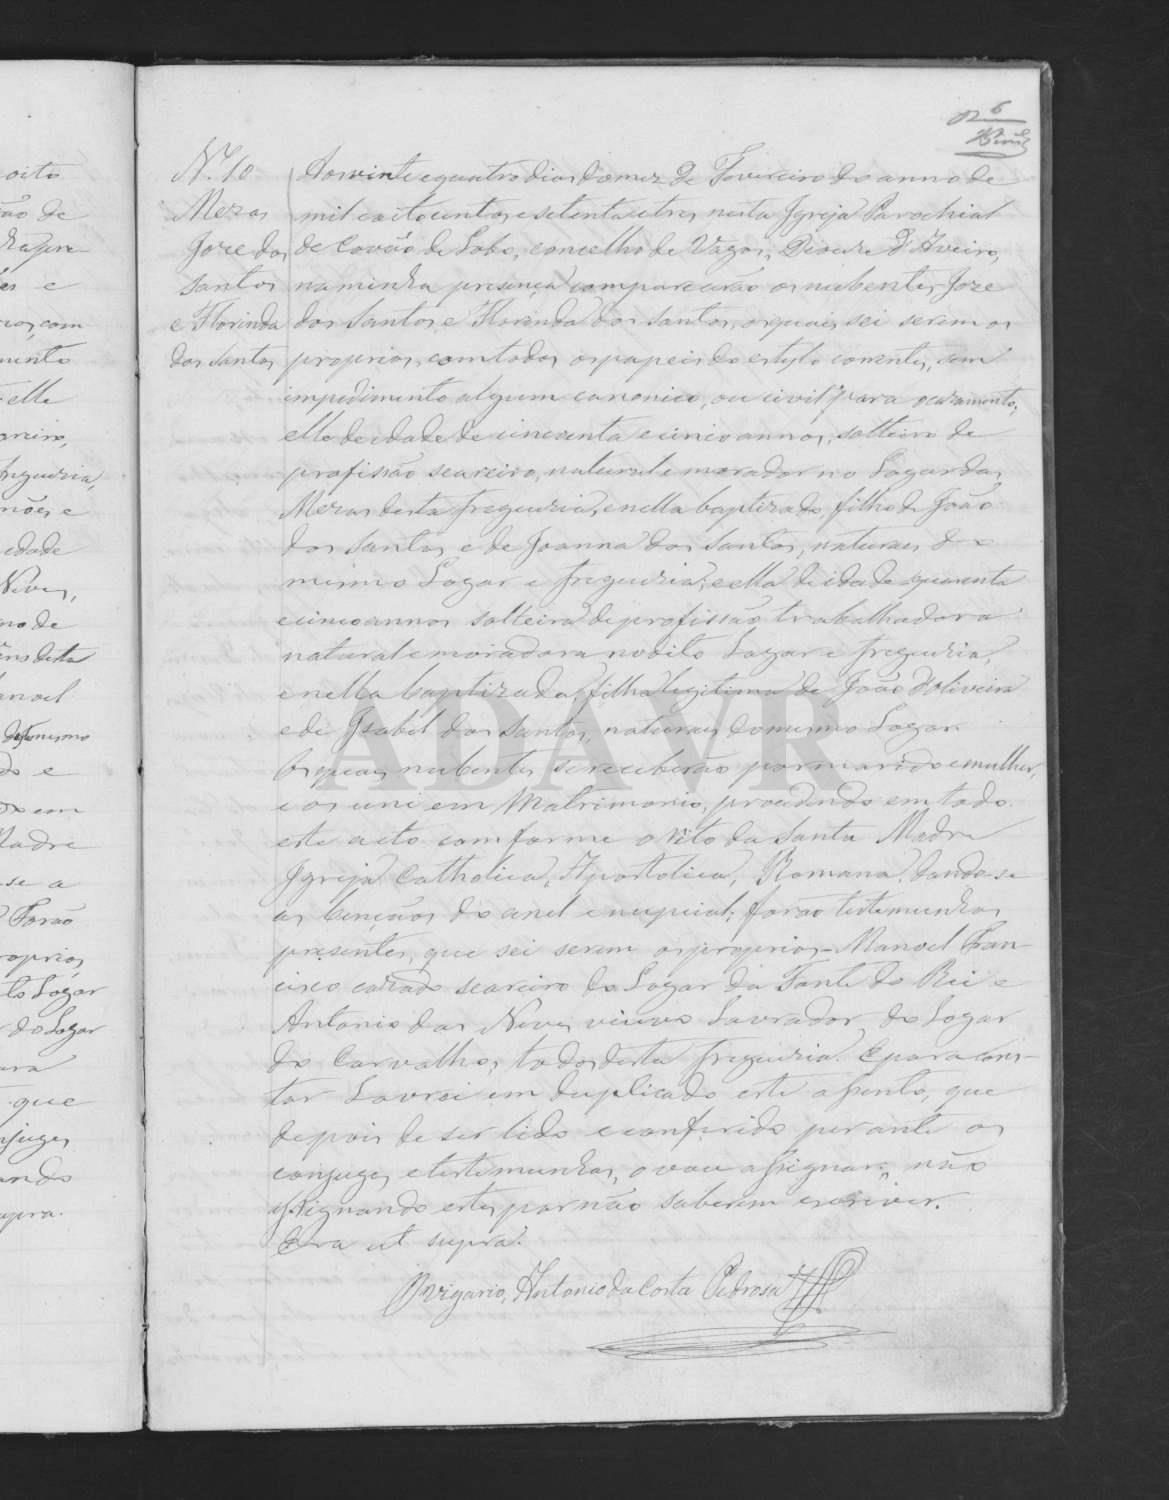 6
N.º 10
Mezas
Joze dos
Santos
e Florinda
dos Santos
Aos vinte e quatro dias do mez de Fevereiro do anno de
mil e oito centos e setenta e tres nesta Igreja Parochial
de Covão do Lobo, concelho de Vagos, Diocese d'Aveiro,
na minha presença comparecerão os nubentes, Joze
dos Santos, e Florinda dos Santos, os quais sei serem os
proprios, com todos os papeis do estylo correntes, sem
impedimento algum canonico, ou civil para o cazamento,
elle de idade de cincoenta e cinco annos, solteiro de
profissão seareiro, natural e morador no Logar das
Mezas desta freguezia, e nella baptizado, filho de João
dos Santos, e de Joanna dos Santos, naturaes do
mesmo Logar e freguezia; e ella de idade quarenta
e cinco annos solteira de profissão trabalhadora
natural e moradora no dito Logar e freguezia,
e nella baptizada, filha legitima de João d'Oliveira
e de Isabel dos Santos, naturaes do mesmo Logar.
Os quaes nubentes se receberão por marido e mulher,
e os uni em Matrimonio, procedendo em todo
este acto comforme o rito da Santa Madre
Igreja Catholica, Apostolica, Romana, dando-se
as bençãos do anel e nupcial; forão testemunhas
presentes, que sei serem os proprios - Manoel Fran-
cisco cazado seareiro do Logar da Fonte do Rei e
Antonio das Neves viuvo Lavrador, do Logar
do Carvalho, todos desta freguezia. E para cons-
tar Lavrei em duplicado este assento, que
depois de ser lido e conferido perante os
conjuges, e testemunhas, o vou assignar; não
assignando estes por não saberem escriver.
Era ut supra.
O Vigario, Antonio da Costa Pedrosa
ADAVR
oito
ão de
es e
com
mento
elle
freguezia,
idade
Neves,
mo de
desta
anoel
do e
em
Madre
-se a
Forão
roprios,
to Logar
do Logar
que
njuges
ando
upra.